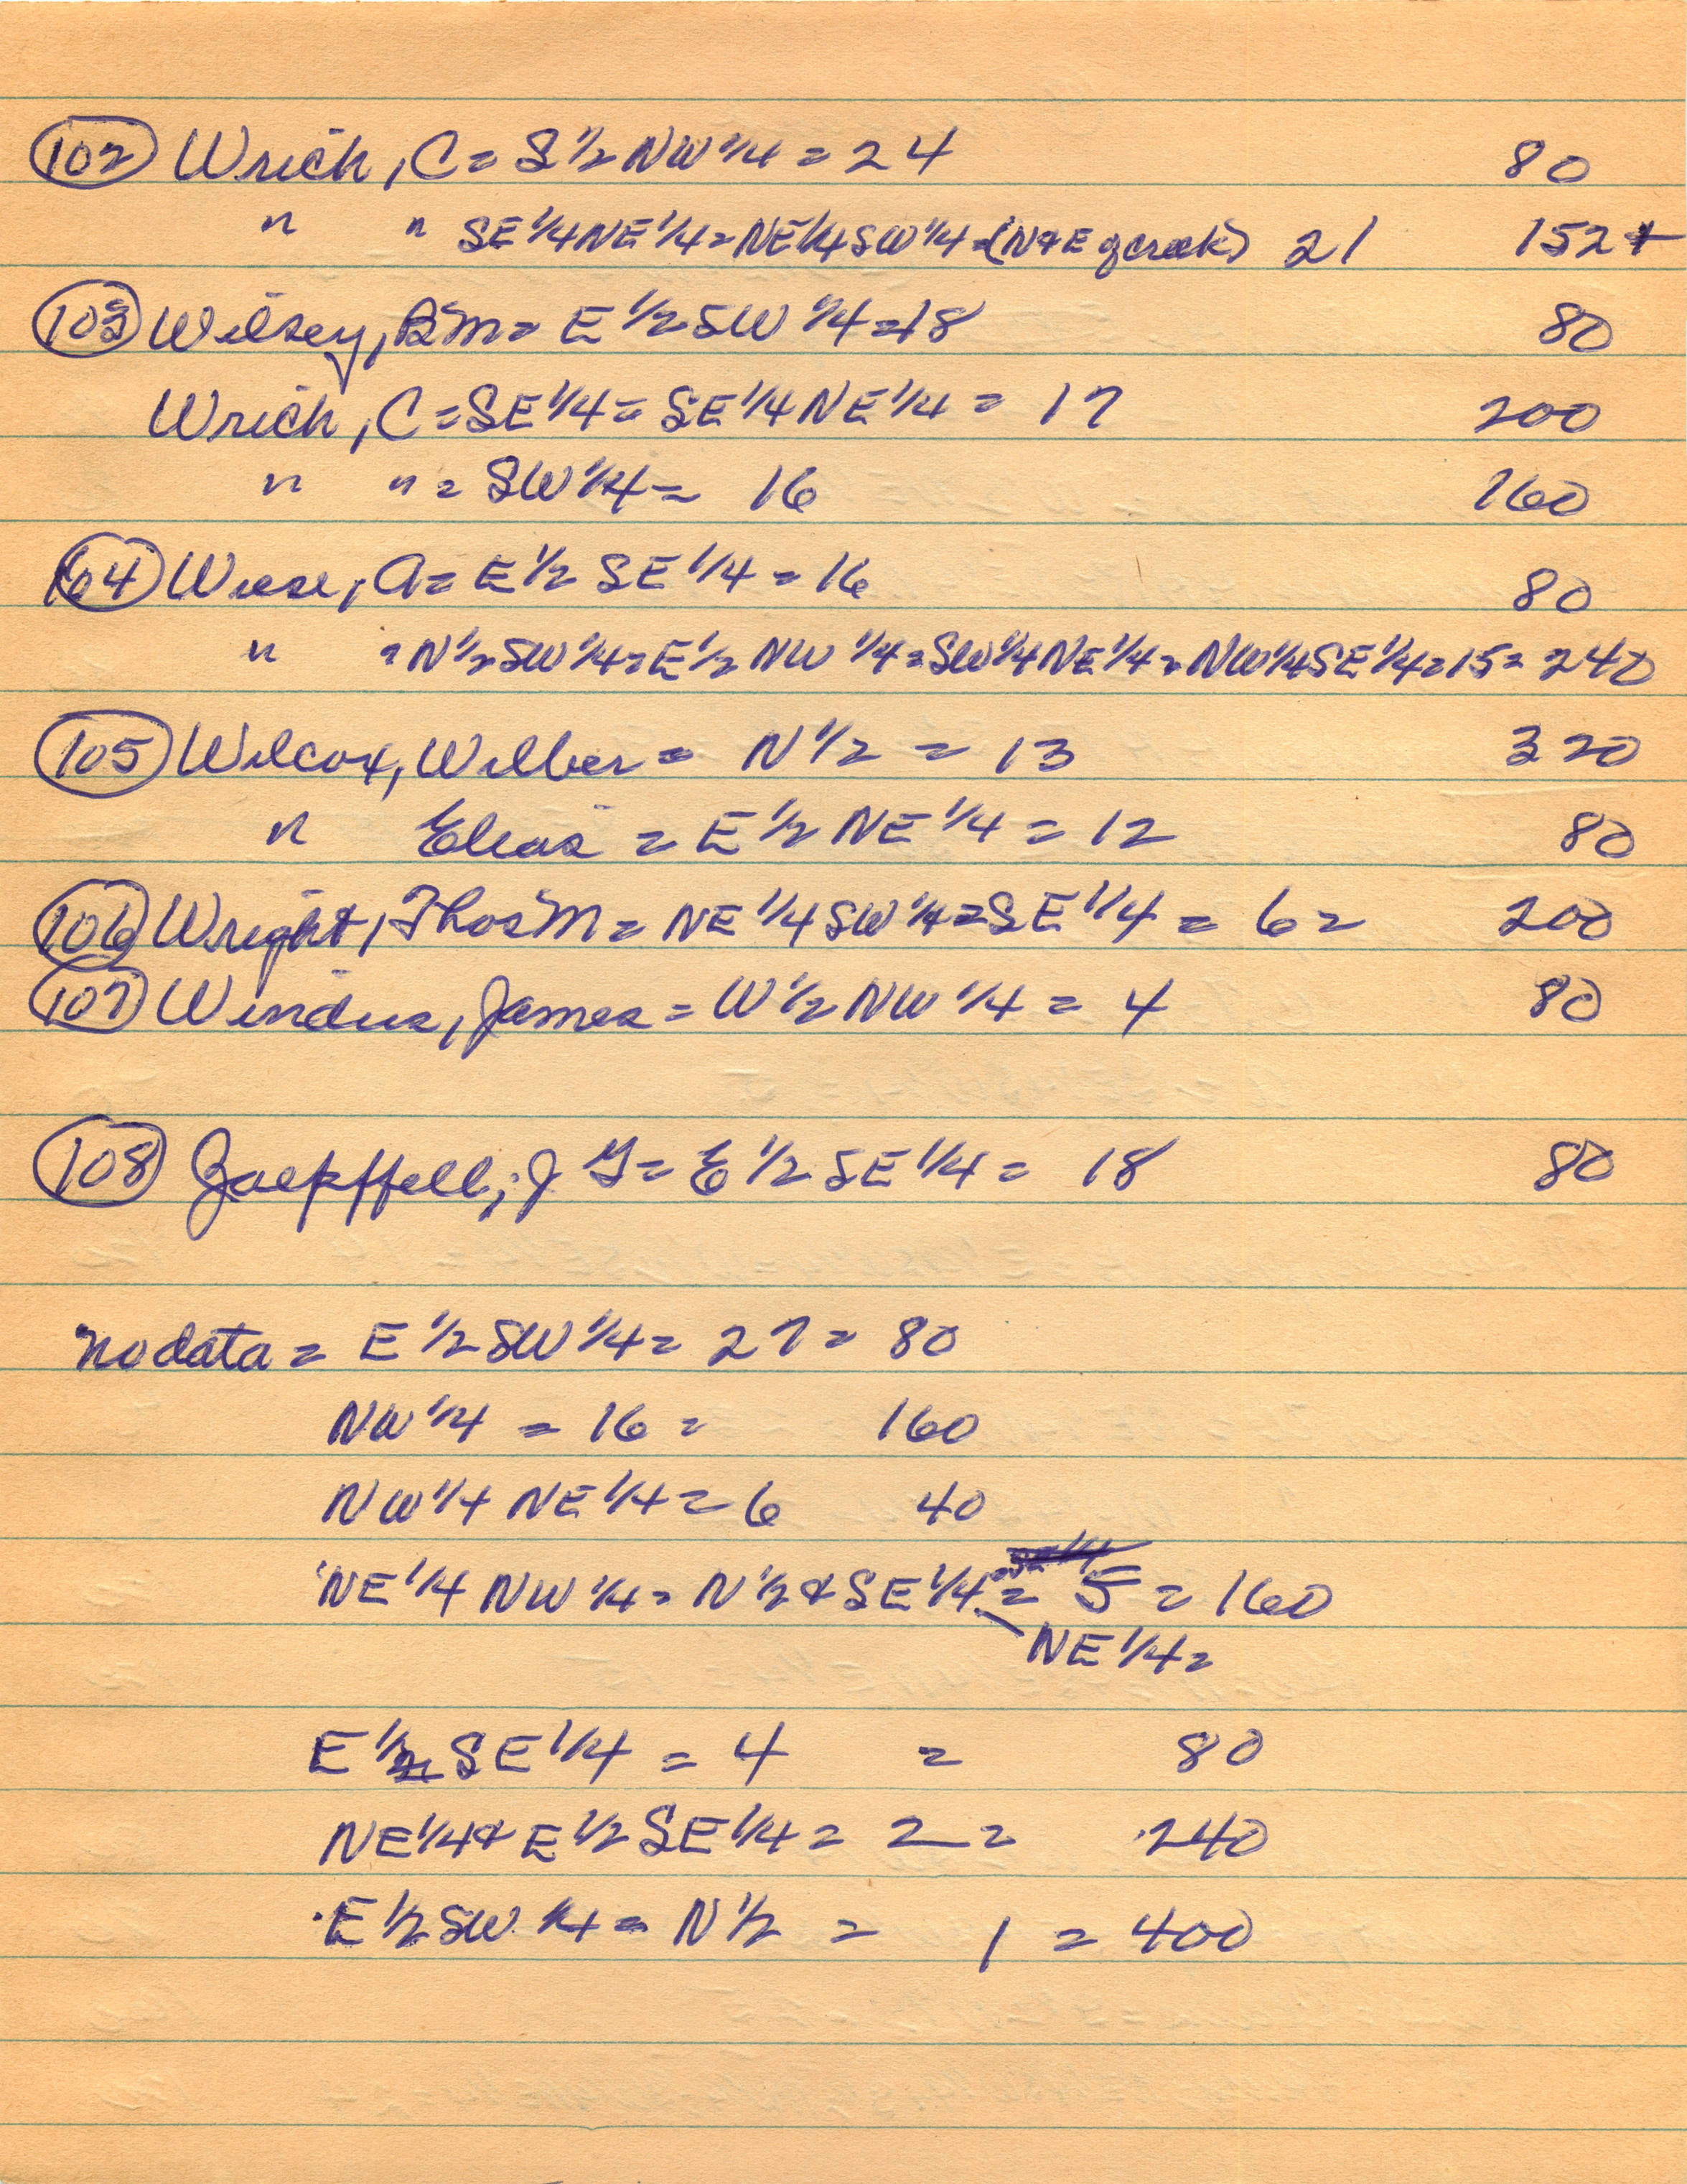 102 Wrich, C = S 1/2 NW 1/4 = 24 80
" " SE 1/4 NE 1/4 = NE 1/4 SW 1/4 = (N & E of creek) 21 152+
103 Wilsey, B M = E 1/2 SW 1/4 = 18 80
Wrich, C = SE 1/4 = SE 1/4 NE 1/4 = 17 200
" " = SW 1/4 = 16 160
104 Wiese, A = E 1/2 SE 1/4 = 16 80
" = N 1/2 SW 1/4 = E 1/2 NW 1/4 = SW 1/4 NE 1/4 = NW 1/4 SE 1/4 = 15 = 240
105 Wilcox, Wilber = N 1/2 = 13 320
" Elias = E 1/2 NE 1/4 = 12 80
106 Wright, Thos M = NE 1/4 SW 1/4 = SE 1/4 = 6 = 200
107 Windus, James = W 1/2 NW 1/4 = 4 80
108 Zaepffell, J G = E 1/2 SE 1/4 = 18 80
no data = E 1/2 SW 1/4 = 27 = 80
NW 1/4 = 16 = 160
NW 1/4 NE 1/4 = 6 40
NE 1/4 NW 1/4 = N 1/2 & SE 1/4 = 5 = 160
NE 1/4 =
E 1/2 SE 1/4 = 4 = 80
NE 1/4 & E 1/2 SE 1/4 = 2 = 240
E 1/2 SW 1/4 = N 1/2 = 1 = 400